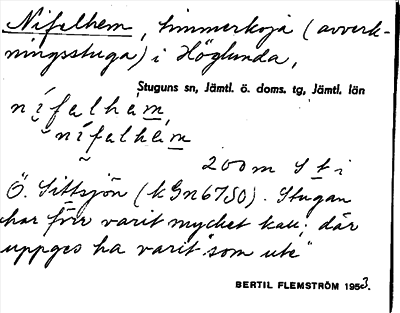 Nifelhem, timmerkoja (avverk-
ningsstuga) i Höglunda,
Stuguns sn, Jämtl. ö. doms. tg, Jämtl. län
nífalhàm
nífalhèm
200 m S t i
Ö. Sittsjön (kGn6750). Stugan
har förr varit mycket kall; där
uppges ha varit "som ute"
BERTIL FLEMSTRÖM 1953.